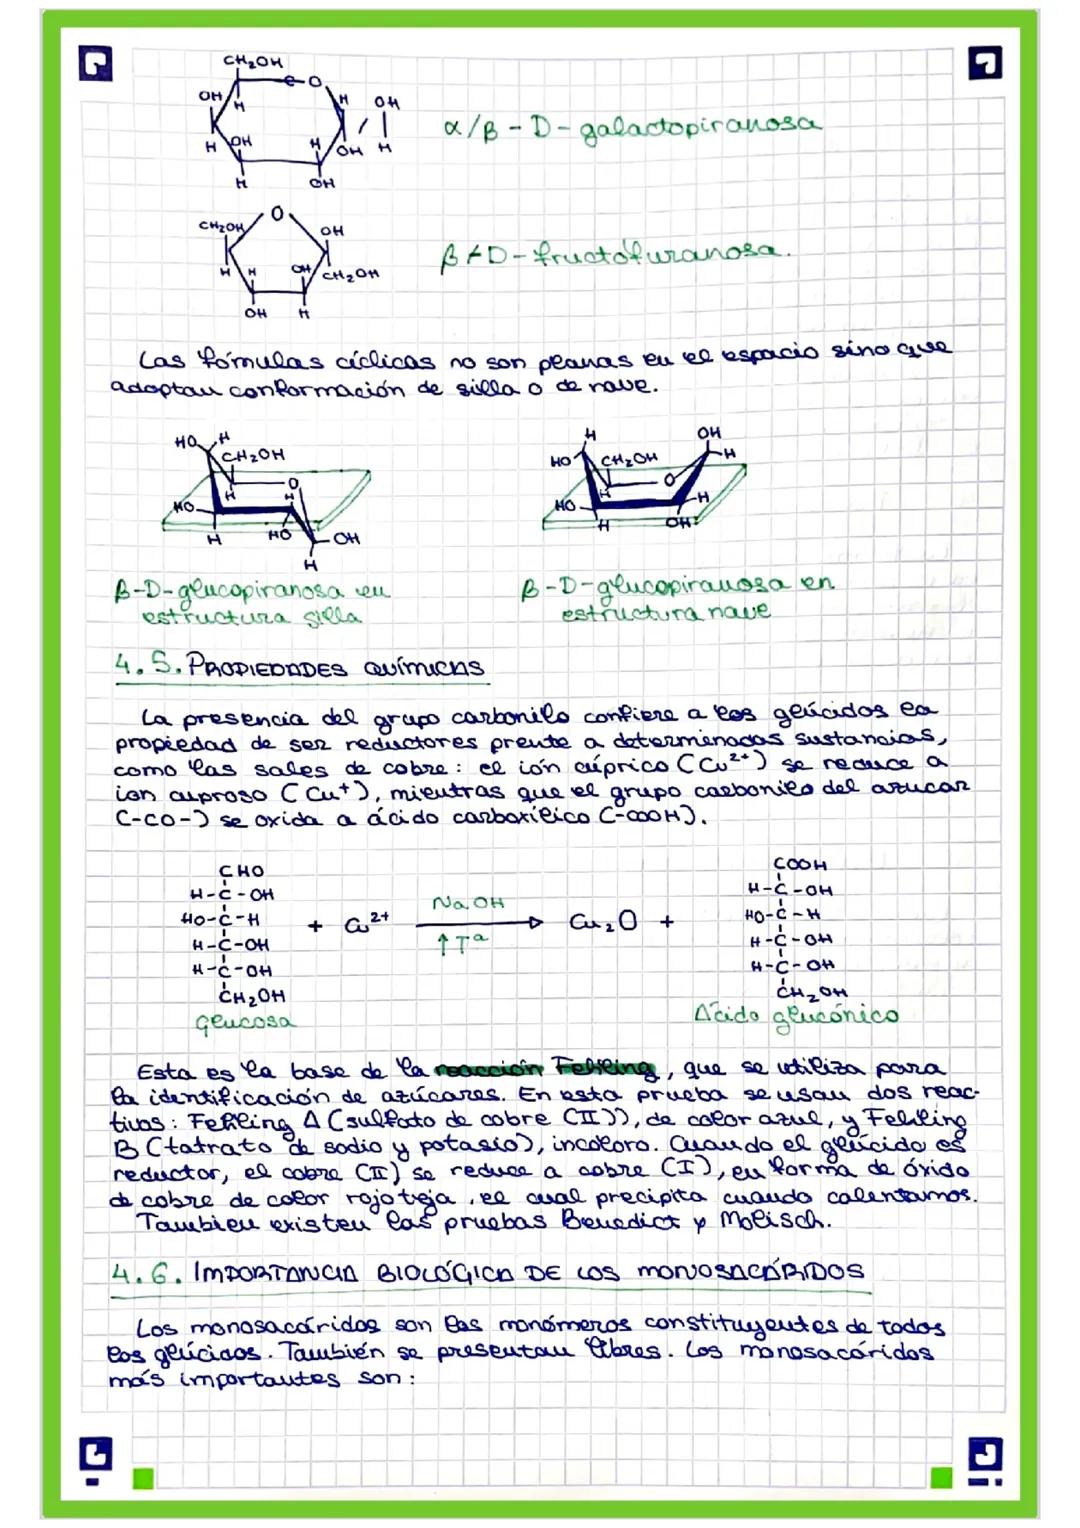 CH₂OH
OH H C-O H OH
H OH H OH H
H OH
α/β - D - galactopiranosa
CH₂OH O OH
H H OH CH₂OH
OH H
β-D-fructofuranosa.
Las fórmulas cíclicas no son planas en el espacio sino que
adoptan conformación de silla o de nave.
HO H
CH₂OH
O
HO H H
H HO OH
H
H OH
HO CH₂OH H
O
HO H H
H OH
β-D-glucopiranosa en
estructura silla
β-D-glucopiranosa en
estructura nave
4.5. PROPIEDADES QUÍMICAS
La presencia del grupo carbonilo confiere a los glúcidos la
propiedad de ser reductores frente a determinadas sustancias,
como las sales de cobre: el ión cúprico (Cu²⁺) se reduce a
ion cuproso (Cu⁺), mientras que el grupo carbonilo del azucar
(-CO-) se oxida a ácido carboxílico (-COOH).
CHO
H-C-OH
HO-C-H
H-C-OH
H-C-OH
CH₂OH
glucosa
+ Cu²⁺
NaOH
↑Tª
Cu₂O +
COOH
H-C-OH
HO-C-H
H-C-OH
H-C-OH
CH₂OH
Ácido glucónico
Esta es la base de la reacción Fehling, que se utiliza para
la identificación de azúcares. En esta prueba se usan dos reac-
tivos: Fehling A (sulfato de cobre (II)), de color azul, y Fehling
B (tatrato de sodio y potasio), incoloro. Cuando el glúcido es
reductor, el cobre (II) se reduce a cobre (I), en forma de óxido
de cobre de color rojo teja, el cual precipita cuando calentamos.
Tambien existen las pruebas Benedict y Molisch.
4.6. IMPORTANCIA BIOLÓGICA DE LOS MONOSACÁRIDOS
Los monosacáridos son los monómeros constituyentes de todos
los glúcidos. También se presentan libres. Los monosacáridos
más importantes son: